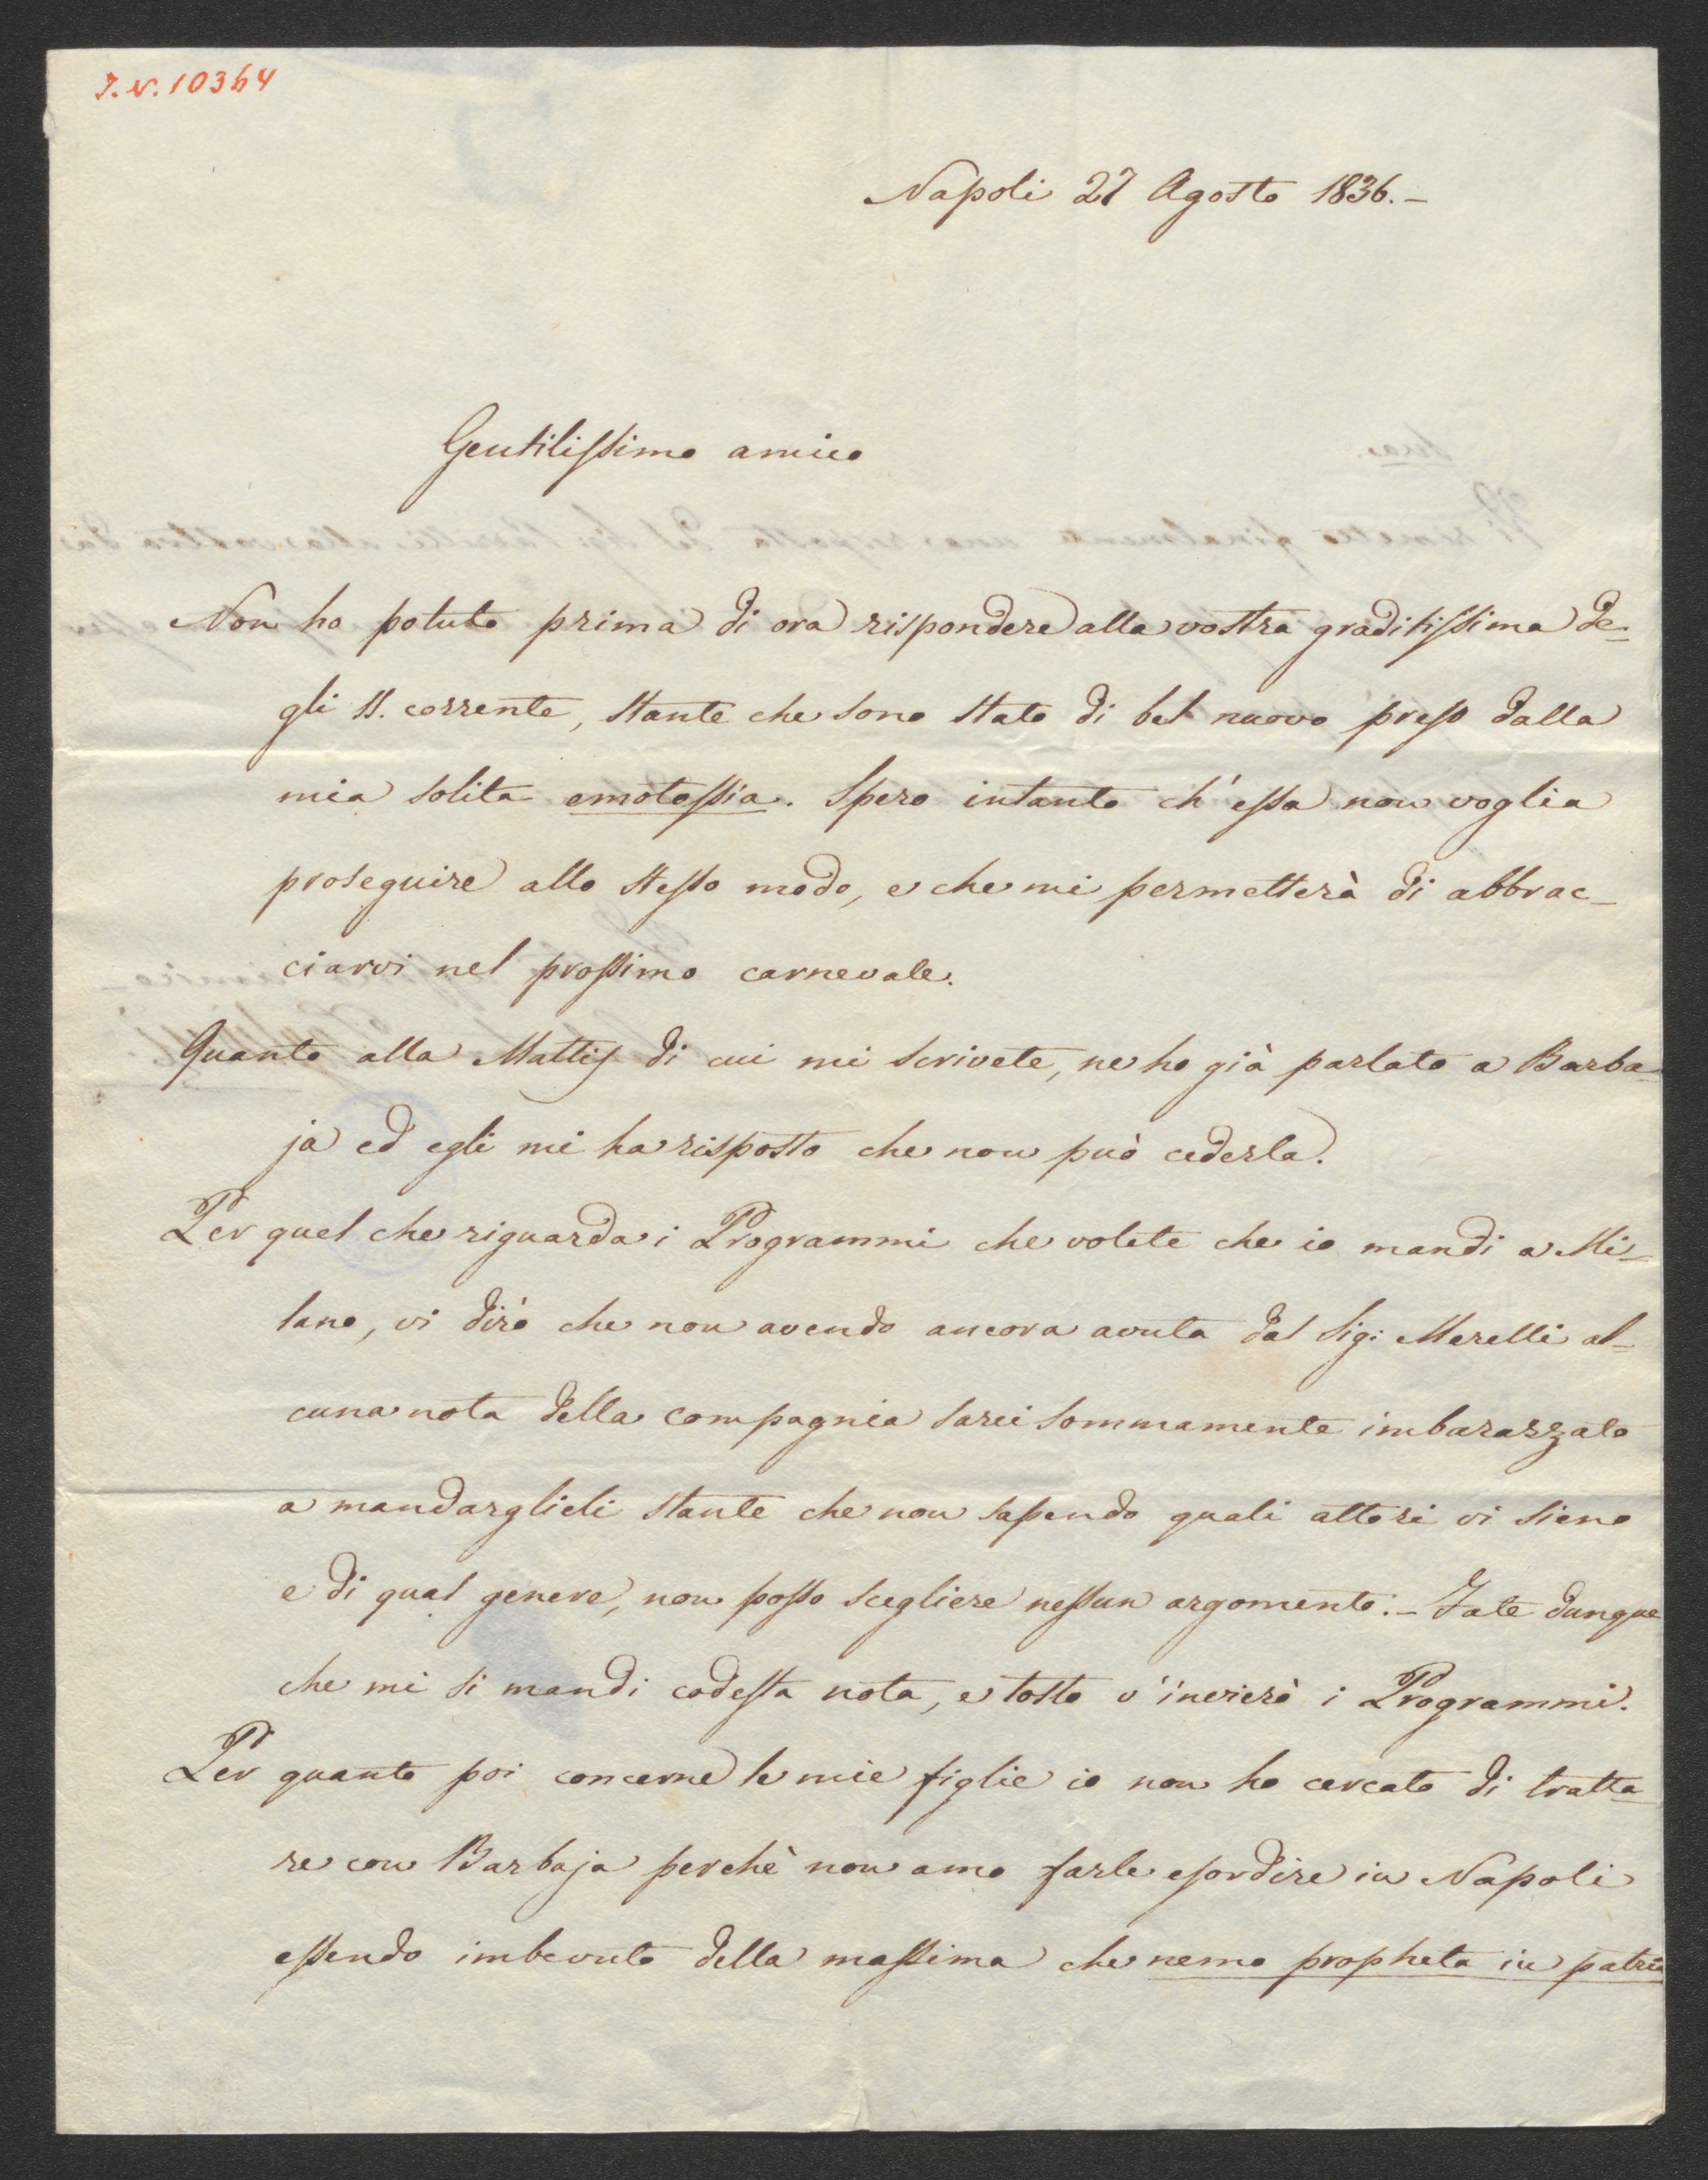 J.N. 10364
Napoli 27 Agosto 1836.-
Gentilissimo amico
Non ho potuto prima di ora rispondere alla vostra graditissima de-
gli 11. corrente, stante che sono stato di bel nuovo preso dalla
mia solita emotossia. Spero intanto ch'essa non voglia
proseguire allo stesso modo, e che mi permetterà di abbrac-
ciarvi nel prossimo carnevale.
Quanto alla Mattis di cui mi scrivete, ne ho già parlato a Barba-
ja ed egli mi ha risposto che non può cederla.
Per quel che riguarda i Programmi che volete che io mandi a Mi-
lano, vi dirò che non avendo ancora avuta dal Sig: Merelli al-
cuna nota della compagnia sarei sommamente imbarazzato
a mandarglieli stante che non sapendo quali attori vi sieno
e di qual genere, non posso scegliere nessun argomento.- Fate dunque
che mi si mandi codesta nota, e tosto v'invierò i Programmi.
Per quanto poi concerne le mie figlie io non ho cercato di tratta-
re con Barbaja perchè non amo farle esordire in Napoli
essendo imbevuto della massima che nemo propheta in patria